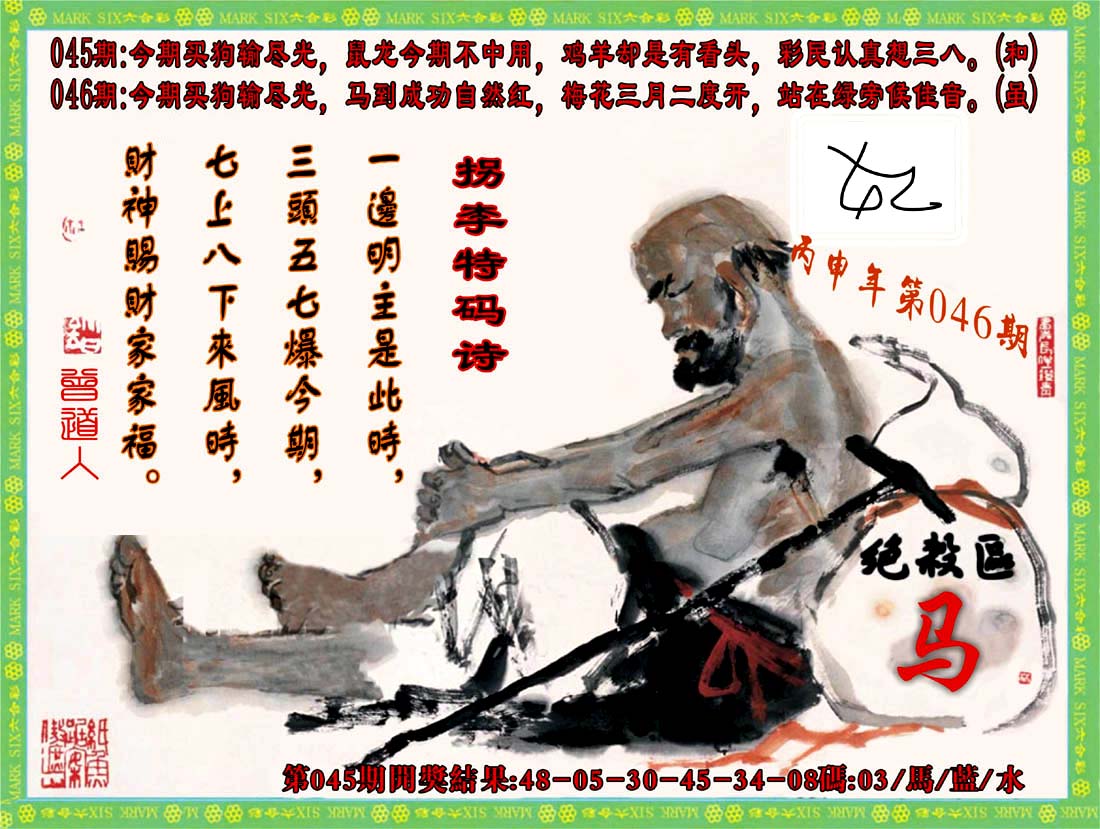 MARK SIX六合彩
045期:今期买狗输尽光，鼠龙今期不中用，鸡羊却是有看头，彩民认真想三八。(和)
046期:今期买狗输尽光，马到成功自然红，梅花三月二度开，站在绿旁候佳音。(虽)
丙申年第046期
拐李特码诗
一邊明主是此時，
三頭五七爆今期，
七上八下來風時，
財神賜財家家福。
曾道人
绝殺區
马
第045期開獎結果:48-05-30-45-34-08碼:03/馬/藍/水